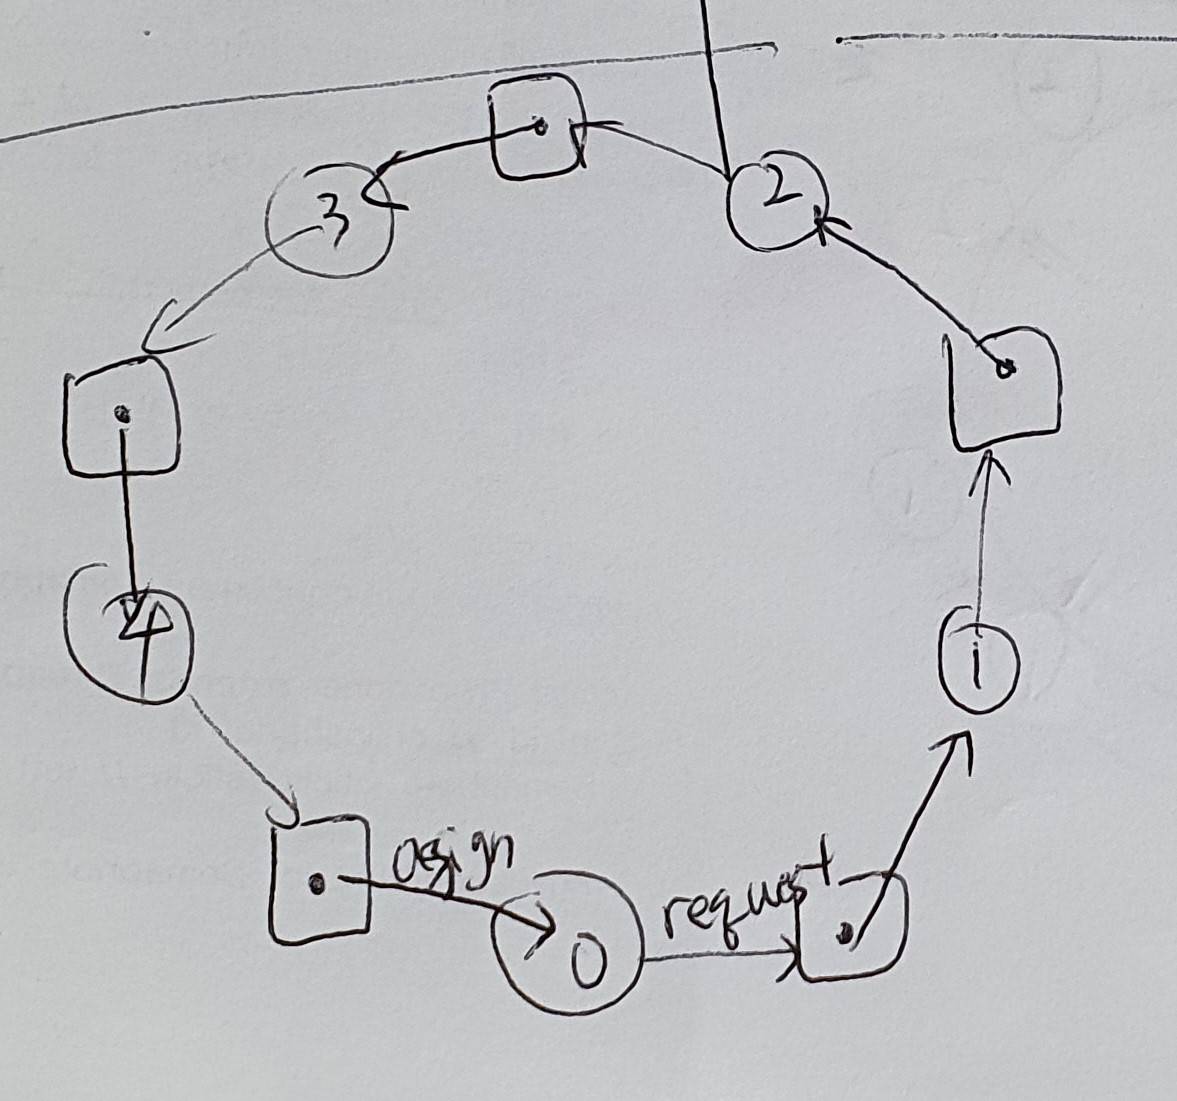 3
2
4
1
asign
request
0